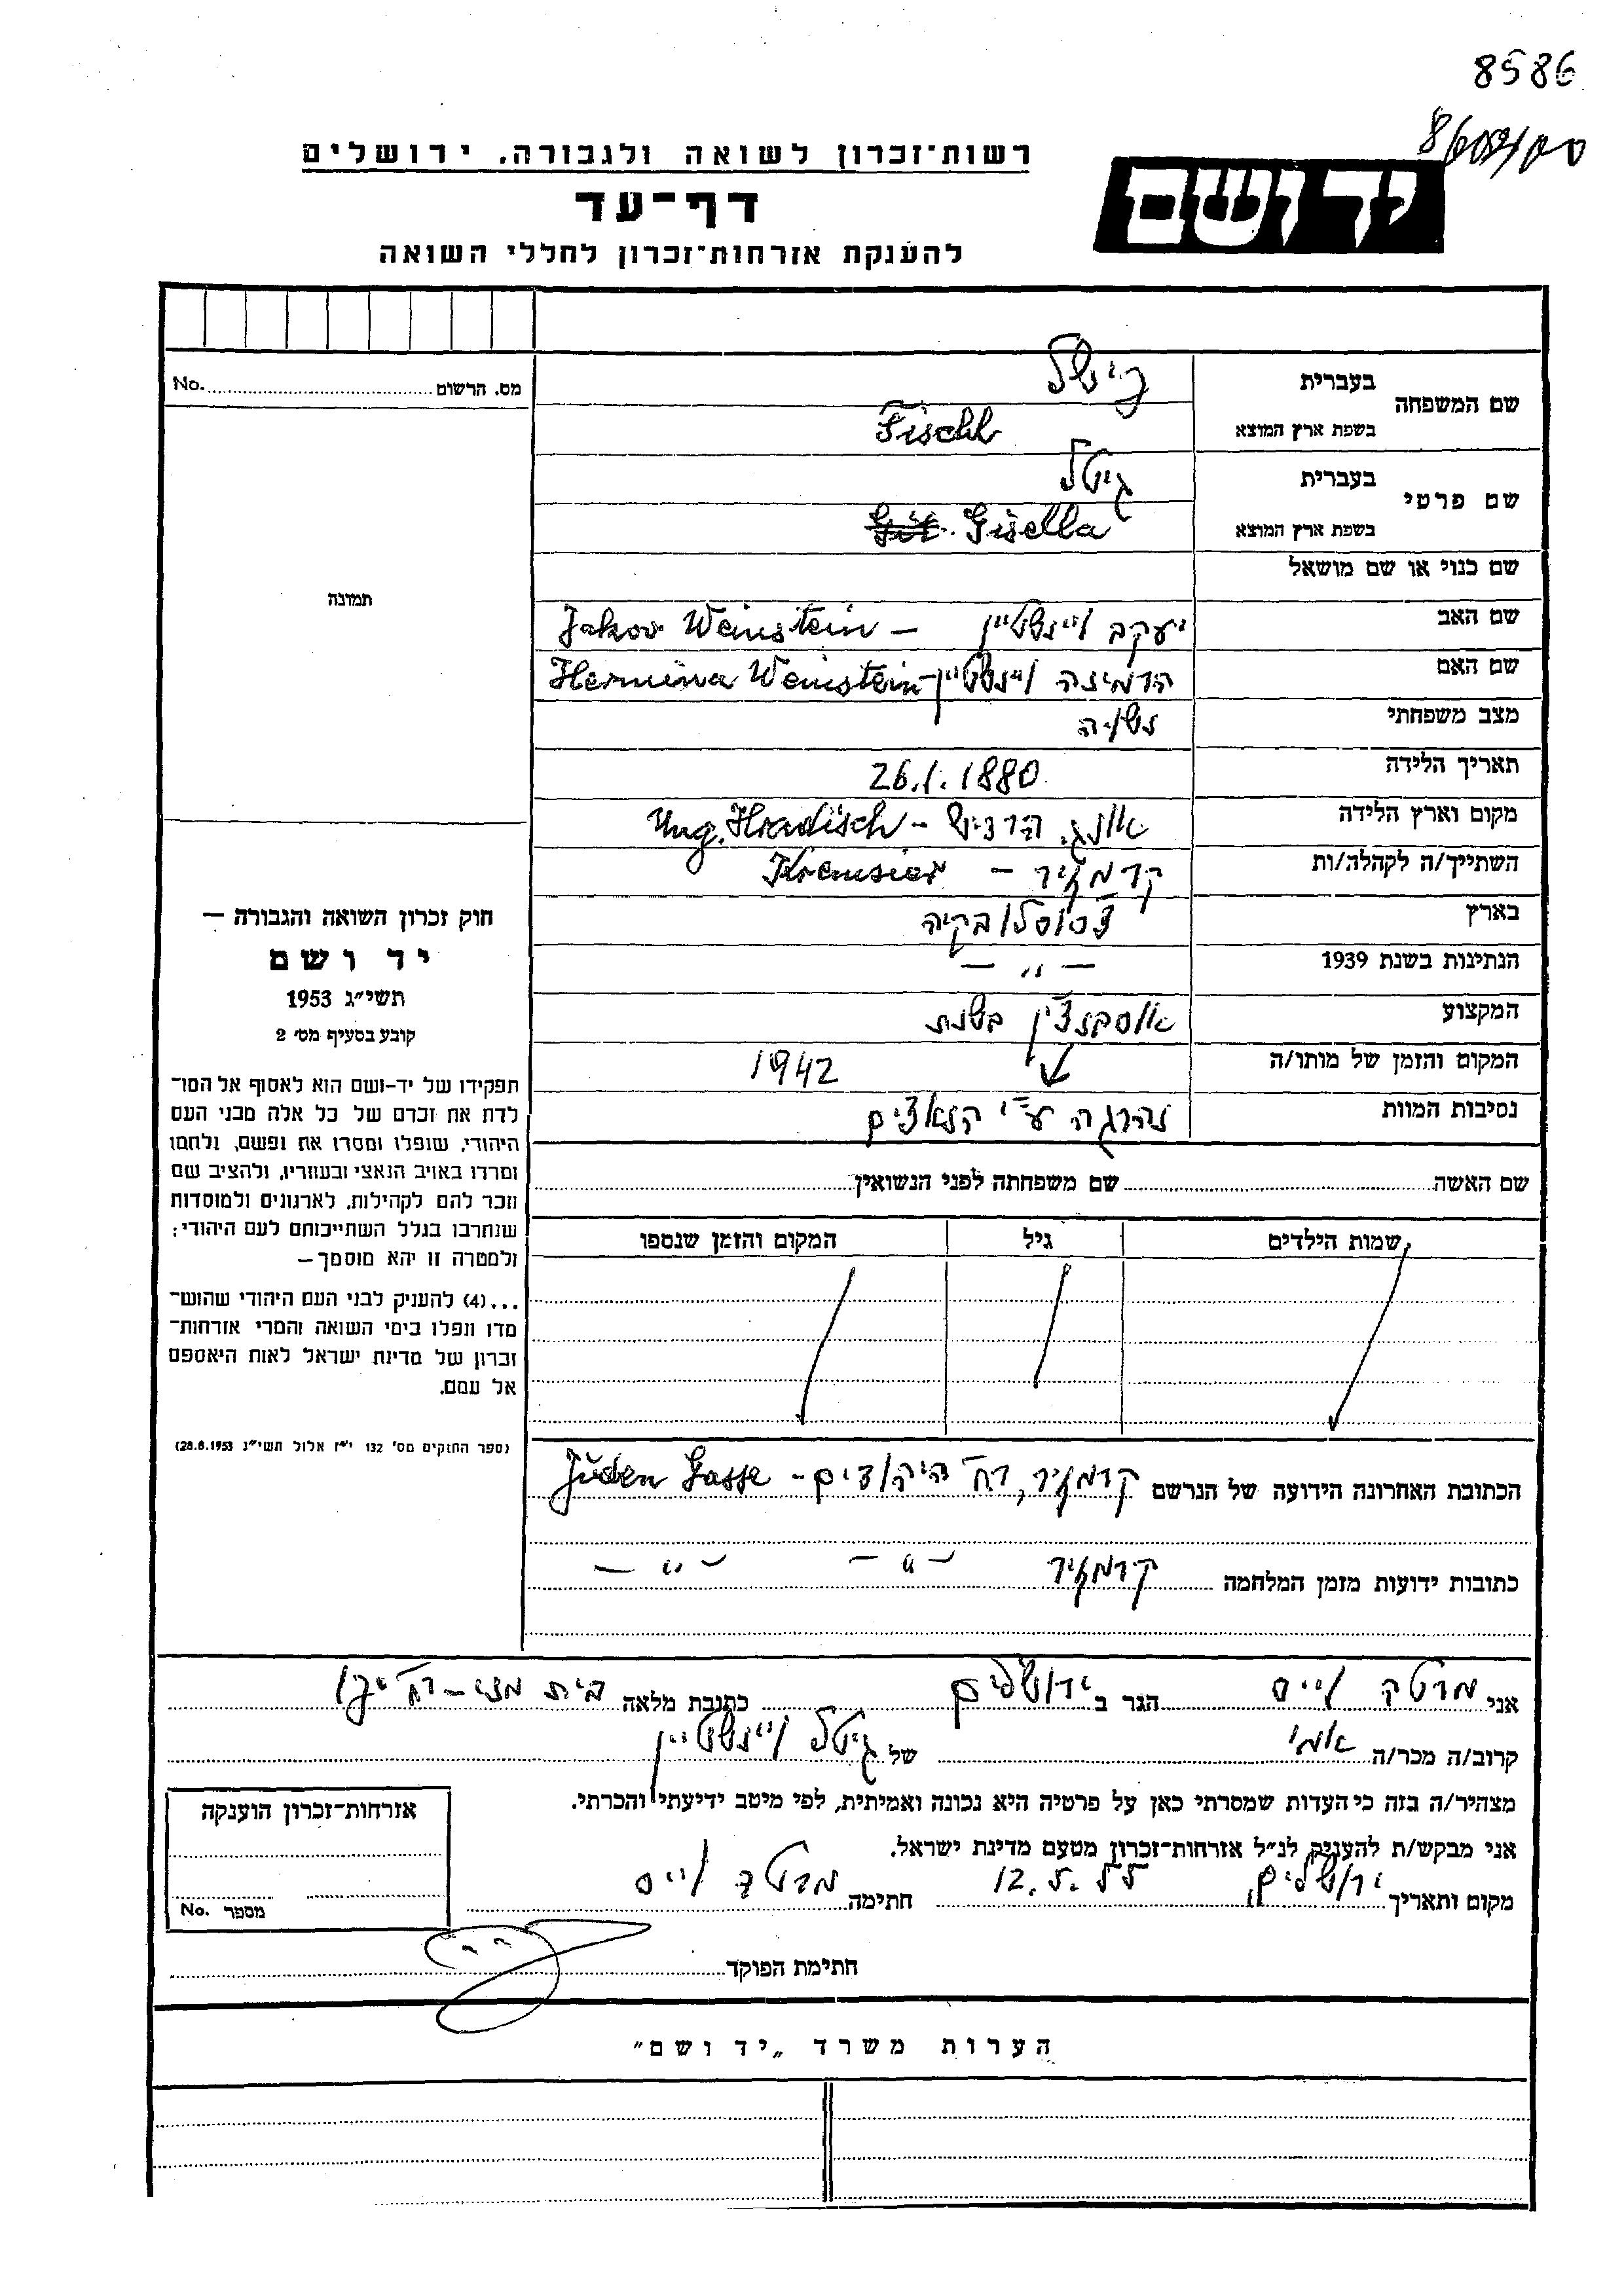 8586
רשות־זכרון לשואה ולגבורה, ירושלים
יד ושם
דף־עד
להענקת אזרחות־זכרון לחללי השואה
מס. הרשום No.
שם המשפחה בעברית פישל
בשפת ארץ המוצא Fischl
שם פרטי בעברית גיטל
בשפת ארץ המוצא Gisella
שם כנוי או שם מושאל
תמונה
שם האב יעקב ויינשטיין – Jakov Weinstein
שם האם הרמינה ויינשטיין – Hermina Weinstein
מצב משפחתי נשויה
תאריך הלידה 26.1.1880
מקום וארץ הלידה אונג. הרדיש – Ung. Hradisch
השתייך/ה לקהלה/ות קרמזיר – Kremsier
בארץ צ'כוסלובקיה
הנתינות בשנת 1939 – " –
המקצוע אוסבנצ'ין בשנת
המקום והזמן של מותו/ה 1942
נסיבות המוות נהרגה ע"י הנאצים
שם האשה שם משפחתה לפני הנשואין
שמות הילדים גיל המקום והזמן שנספו
חוק זכרון השואה והגבורה –
יד ושם
תשי"ג 1953
קובע בסעיף מס' 2
תפקידו של יד-ושם הוא לאסוף אל המו־
לדת את זכרם של כל אלה מבני העם
היהודי, שנפלו ומסרו את נפשם, נלחמו
ומרדו באויב הנאצי ובעוזריו, ולהציב שם
וזכר להם לקהילות, לארגונים ולמוסדות
שנחרבו בגלל השתייכותם לעם היהודי;
ולמטרה זו יהא מוסמך –
...(4) להעניק לבני העם היהודי שהוש־
מדו ונפלו בימי השואה והמרי אזרחות־
זכרון של מדינת ישראל לאות היאספם
אל עמם.
(ספר החוקים מס' 132 י"ז אלול תשי"ג 28.8.1953)
הכתובת האחרונה הידועה של הנרשם קרמזיר, רח' היהודים – Juden Gasse
כתובות ידועות מזמן המלחמה קרמזיר – " – – " –
אני מרטה וייס הגר ב ירושלים כתובת מלאה
קרוב/ה מכר/ה אמי של גיטל ויינשטיין
מצהיר/ה בזה כי העדות שמסרתי כאן על פרטיה היא נכונה ואמיתית, לפי מיטב ידיעתי והכרתי.
אני מבקש/ת להעניק לנ"ל אזרחות־זכרון מטעם מדינת ישראל.
מקום ותאריך ירושלים, 12.5.55 חתימה מרטה וייס
אזרחות־זכרון הוענקה
מספר No.
חתימת הפוקד
הערות משרד „יד ושם"